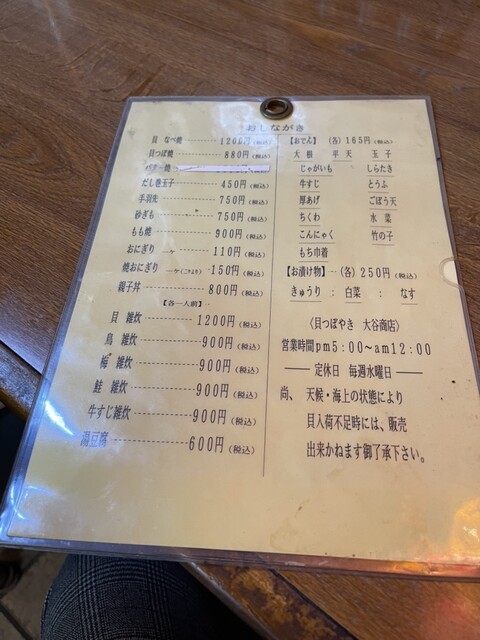 おしながき
貝 なべ焼 1200円(税込)
貝つぼ焼 880円(税込)
バター焼
だし巻玉子 450円(税込)
手羽先 750円(税込)
砂ぎも 750円(税込)
もも焼 900円(税込)
おにぎり 一ケ 110円(税込)
焼おにぎり 一ケ(二ケより) 150円(税込)
親子丼 800円(税込)
【各一人前】
貝 雑炊 1200円(税込)
鳥 雑炊 900円(税込)
梅 雑炊 900円(税込)
鮭 雑炊 900円(税込)
牛すじ雑炊 900円(税込)
湯豆腐 600円(税込)
【おでん】 (各)165円(税込)
大根 平天 玉子
じゃがいも しらたき
牛すじ とうふ
厚あげ ごぼう天
ちくわ 水菜
こんにゃく 竹の子
もち巾着
【お漬け物】 (各)250円(税込)
きゅうり : 白菜 : なす
〈貝つぼやき 大谷商店〉
営業時間pm5:00〜am12:00
定休日 毎週水曜日
尚、天候・海上の状態により
貝入荷不足時には、販売
出来かねます御了承下さい。